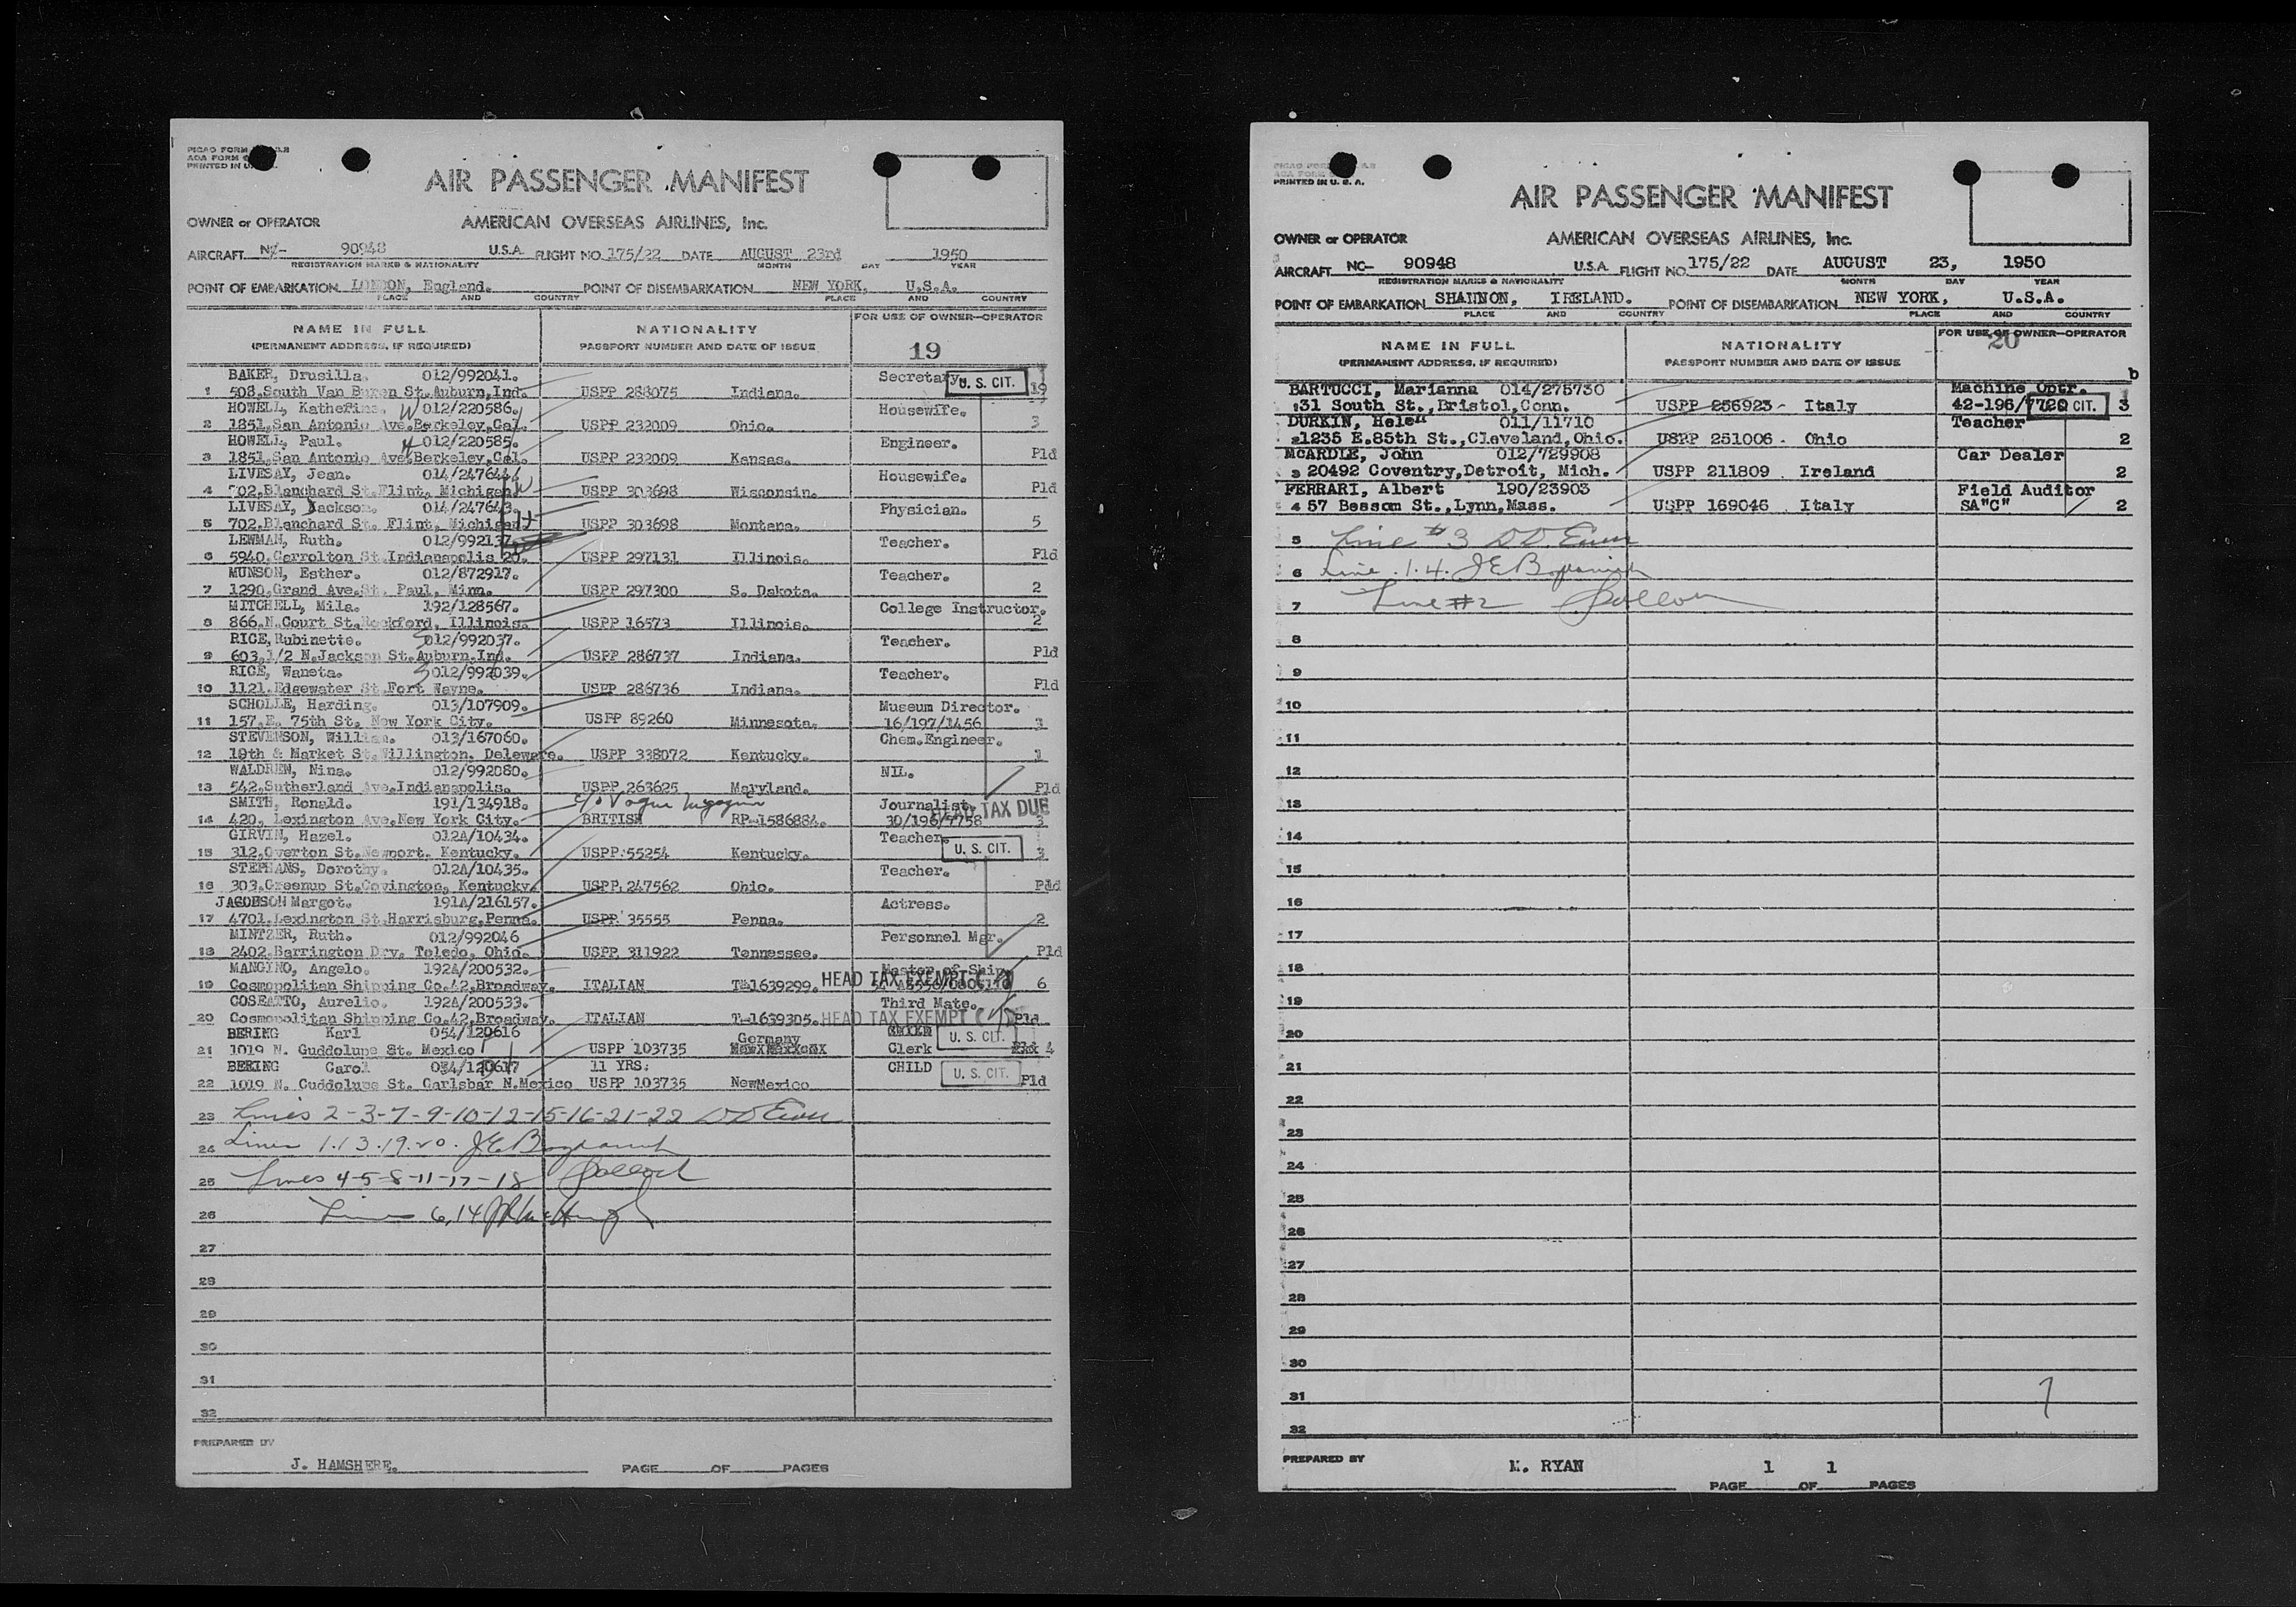 AIR PASSENGER MANIFEST
OWNER or OPERATOR AMERICAN OVERSEAS AIRLINES, Inc.
AIRCRAFT 90948 U.S.A. FLIGHT NO. 175/22 DATE AUGUST 23rd 1950
REGISTRATION MARKS & NATIONALITY MONTH DAY YEAR
POINT OF EMBARKATION LONDON, England. POINT OF DISEMBARKATION NEW YORK, U.S.A.
PLACE AND COUNTRY PLACE AND COUNTRY
NAME IN FULL NATIONALITY FOR USE OF OWNER—OPERATOR
(PERMANENT ADDRESS, IF REQUIRED) PASSPORT NUMBER AND DATE OF ISSUE 19
BAKER, Drusilla. 012/992041. Secretary. U. S. CIT.
1 508,South Van Buren St.Auburn,Ind. USPP 288075 Indiana. 19
HOWELL, Katherine. W 012/220586. Housewife.
2 1851,San Antonio Ave.Berkeley,Cal. USPP 232009 Ohio. 3
HOWELL, Paul. H 012/220585. Engineer.
3 1851,San Antonio Ave.Berkeley,Cal. USPP 232009 Kansas. Pld
LIVESAY, Jean. 014/247644. Housewife.
4 702,Blanchard St.Flint, Michigan. W USPP 303698 Wisconsin. Pld
LIVESAY, Jackson. 014/247643. Physician.
5 702,Blanchard St. Flint, Michigan. H USPP 303698 Montana. 5
LEWMAN, Ruth. 012/992137. Teacher.
6 5940,Carrolton St.Indianapolis 20. USPP 297131 Illinois. Pld
MUNSON, Esther. 012/872917. Teacher.
7 1290,Grand Ave.St. Paul, Minn. USPP 297300 S. Dakota. 2
MITCHELL, Mila. 192/128567. College Instructor.
8 866.N.Court St.Rockford, Illinois. USPP 16573 Illinois. 2
RICE,Rubinette. 012/992037. Teacher.
9 603,1/2 N.Jackson St.Auburn.Ind. USPP 286737 Indiana. Pld
RICE, Waneta. 012/992039. Teacher.
10 1121.Edgewater St.Fort Wayne. USPP 286736 Indiana. Pld
SCHOLLE, Harding. 013/107909. Museum Director.
11 157.E. 75th St. New York City. USPP 89260 Minnesota. 16/197/1456 3
STEVENSON, William. 013/167060. Chem.Engineer.
12 19th & Market St.Willington, Deleware. USPP 338072 Kentucky. 1
WALDREN, Nina. 012/992080. NIL.
13 542,Sutherland Ave.Indianapolis. USPP 263625 Maryland. Pld
SMITH, Ronald. 191/134918. c/o Vogue Journalist. HEAD TAX DUE
14 420, Lexington Ave.New York City. BRITISH RP-1586884. 30/196/7758 3
GIRVIN, Hazel. 012A/10434. Teacher.
15 312,Overton St.Newport. Kentucky. USPP.55254 Kentucky. U. S. CIT. 3
STEPHANS, Dorothy. 012A/10435. Teacher.
16 303.Greenup St.Covington, Kentucky. USPP. 247562 Ohio. Pld
JACOBSON Margot. 191A/216157. Actress.
17 4701.Lexington St.Harrisburg,Penna. USPP 35555 Penna. 2
MINTZER, Ruth. 012/992046 Personnel Mgr.
18 2402.Barrington Drv. Toledo, Ohio. USPP 311922 Tennessee. Pld
MANGINO, Angelo. 192A/200532. Master of Ship
19 Cosmopolitan Shipping Co.42,Broadway. ITALIAN T-1639299. HEAD TAX EXEMPT 6
COSEATTO, Aurelio. 192A/200533. Third Mate.
20 Cosmopolitan Shipping Co.42,Broadway. ITALIAN T-1639305. HEAD TAX EXEMPT Pld
BERING Karl 054/120616 Germany U. S. CIT.
21 1019 N. Guddolupe St. Mexico USPP 103735 Clerk 4
BERING Carol 054/120617 11 YRS. CHILD U. S. CIT.
22 1019 N. Guddolupe St. Carlsbar N.Mexico USPP 103735 NewMexico Pld
23 Lines 2-3-7-9-10-12-15-16-21-22
24 Lines 1.13.19.20.
25 Lines 4-5-8-11-17-18
26 Lines 6,14
27
28
29
30
31
32
PREPARED BY
J. HAMSHERE. PAGE OF PAGES
PRINTED IN U. S. A.
AIR PASSENGER MANIFEST
OWNER or OPERATOR AMERICAN OVERSEAS AIRLINES, Inc.
AIRCRAFT NC- 90948 U.S.A. FLIGHT NO. 175/22 DATE AUGUST 23, 1950
REGISTRATION MARKS & NATIONALITY MONTH DAY YEAR
POINT OF EMBARKATION SHANNON, IRELAND. POINT OF DISEMBARKATION NEW YORK, U.S.A.
PLACE AND COUNTRY PLACE AND COUNTRY
NAME IN FULL NATIONALITY FOR USE OF OWNER—OPERATOR
(PERMANENT ADDRESS, IF REQUIRED) PASSPORT NUMBER AND DATE OF ISSUE 20
b
BARTUCCI, Marianna 014/275730 Machine Optr.
1 31 South St.,Bristol,Conn. USPP 256923 - Italy 42-196/7720 CIT. 3
DURKIN, Helen 011/11710 Teacher
2 1235 E.85th St.,Cleveland,Ohio. USPP 251006 . Ohio 2
McARDLE, John 012/729908 Car Dealer
3 20492 Coventry,Detroit, Mich. USPP 211809 . Ireland 2
FERRARI, Albert 190/23903 Field Auditor
4 57 Bessom St.,Lynn,Mass. USPP 169046 . Italy SA"C" 2
5 Line #3
6 Line .1.4.
7 Line #2
8
9
10
11
12
13
14
15
16
17
18
19
20
21
22
23
24
25
26
27
28
29
30
31
32
PREPARED BY
M. RYAN 1 1
PAGE OF PAGES